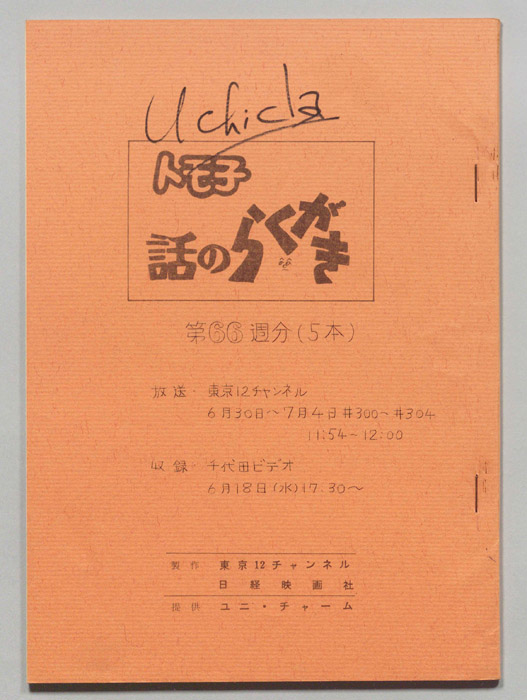 Uchida
トモ子
話のらくがき
第66週分(5本)
放送・東京12チャンネル
6月30日〜7月4日 #300〜#304
11:54〜12:00
収録・千代田ビデオ
6月18日(水)17.30〜
製作 東京12チャンネル
日経映画社
提供 ユニ・チャーム